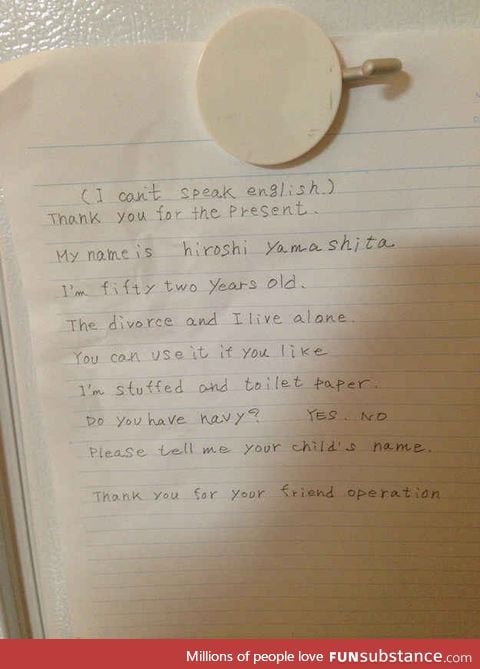 (I can't speak english.)
Thank you for the Present.
My name is hiroshi Yamashita
I'm fifty two years old.
The divorce and I live alone.
You can use it if you like
I'm stuffed and toilet paper.
Do you have navy? YES. NO
Please tell me your child's name.
Thank you for your friend operation
Millions of people love FUNsubstance.com